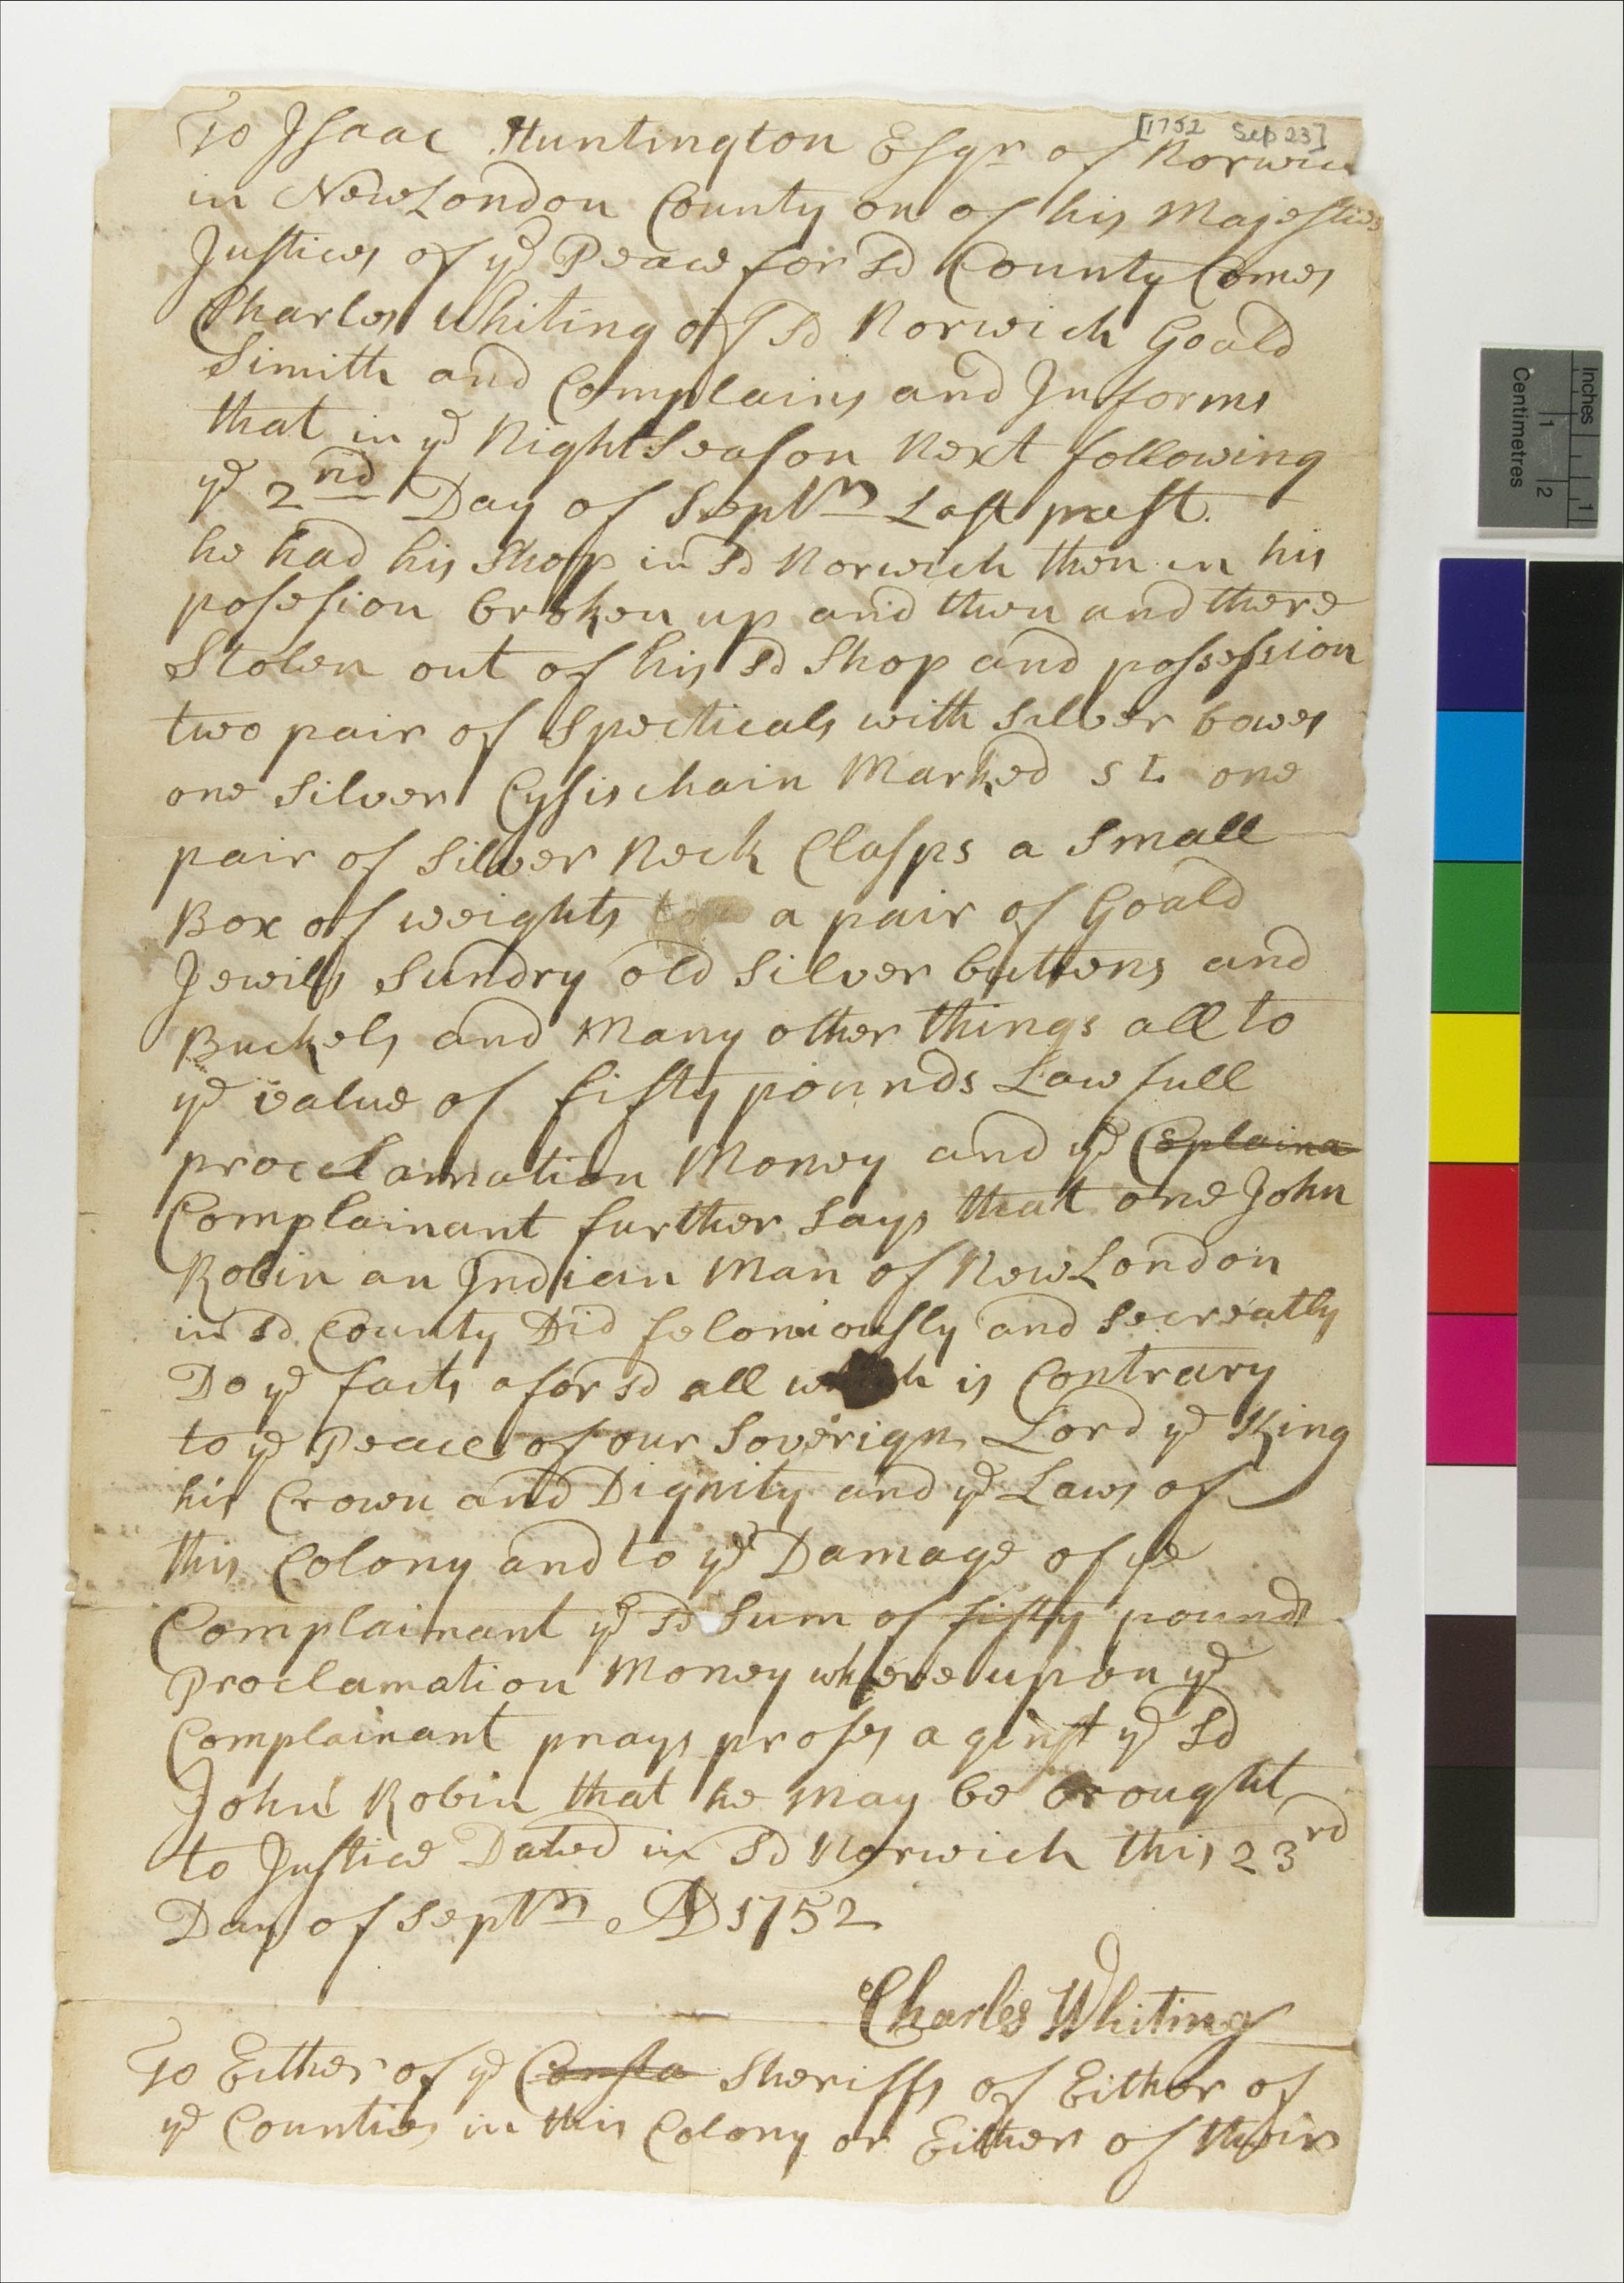 [1752 Sep 23]
To Isaac Huntington Esqr of Norwich
in New London County on of his Majesties
Justices of ye Peace for sd County Comes
Charles Whiting of sd Norwich Goald
Simith and Complains and Informs
that in ye Night Season Next following
ye 2nd Day of Septm Last past.
he had his Shop in sd Norwich then in his
posesion broken up and then and there
Stolen out of his sd Shop and possession
two pair of Specticals with silver bows
one silver Cysischain Marked S L one
pair of silver Neck Clasps a Small
Box of weights a pair of Goald
Jewills Sundry old silver buttons and
Buckels and Many other things all to
ye value of fifty pounds Lawfull
proclamation Money and ye Coplaina
Complainant further says that one John
Robin an Indian Man of New London
in sd County Did feloniously and Secreatly
Do ye facts aforsd all which is Contrary
to ye Peace of our Soverign Lord ye King
his Crown and Dignity and ye Laws of
this Colony and to ye Damage of ye
Complainant ye sd Sum of fifty pounds
Proclamation Money whereupon ye
Complainant prays proses a ginst ye sd
John Robin that he May be brought
to Justice Dated in sd Norwich this 23rd
Day of Septm AD 1752
Charles Whiting
To Either of ye Consta Sheriffs of Either of
ye Counties in this Colony or Either of their
Centimetres
1 2
Inches
1